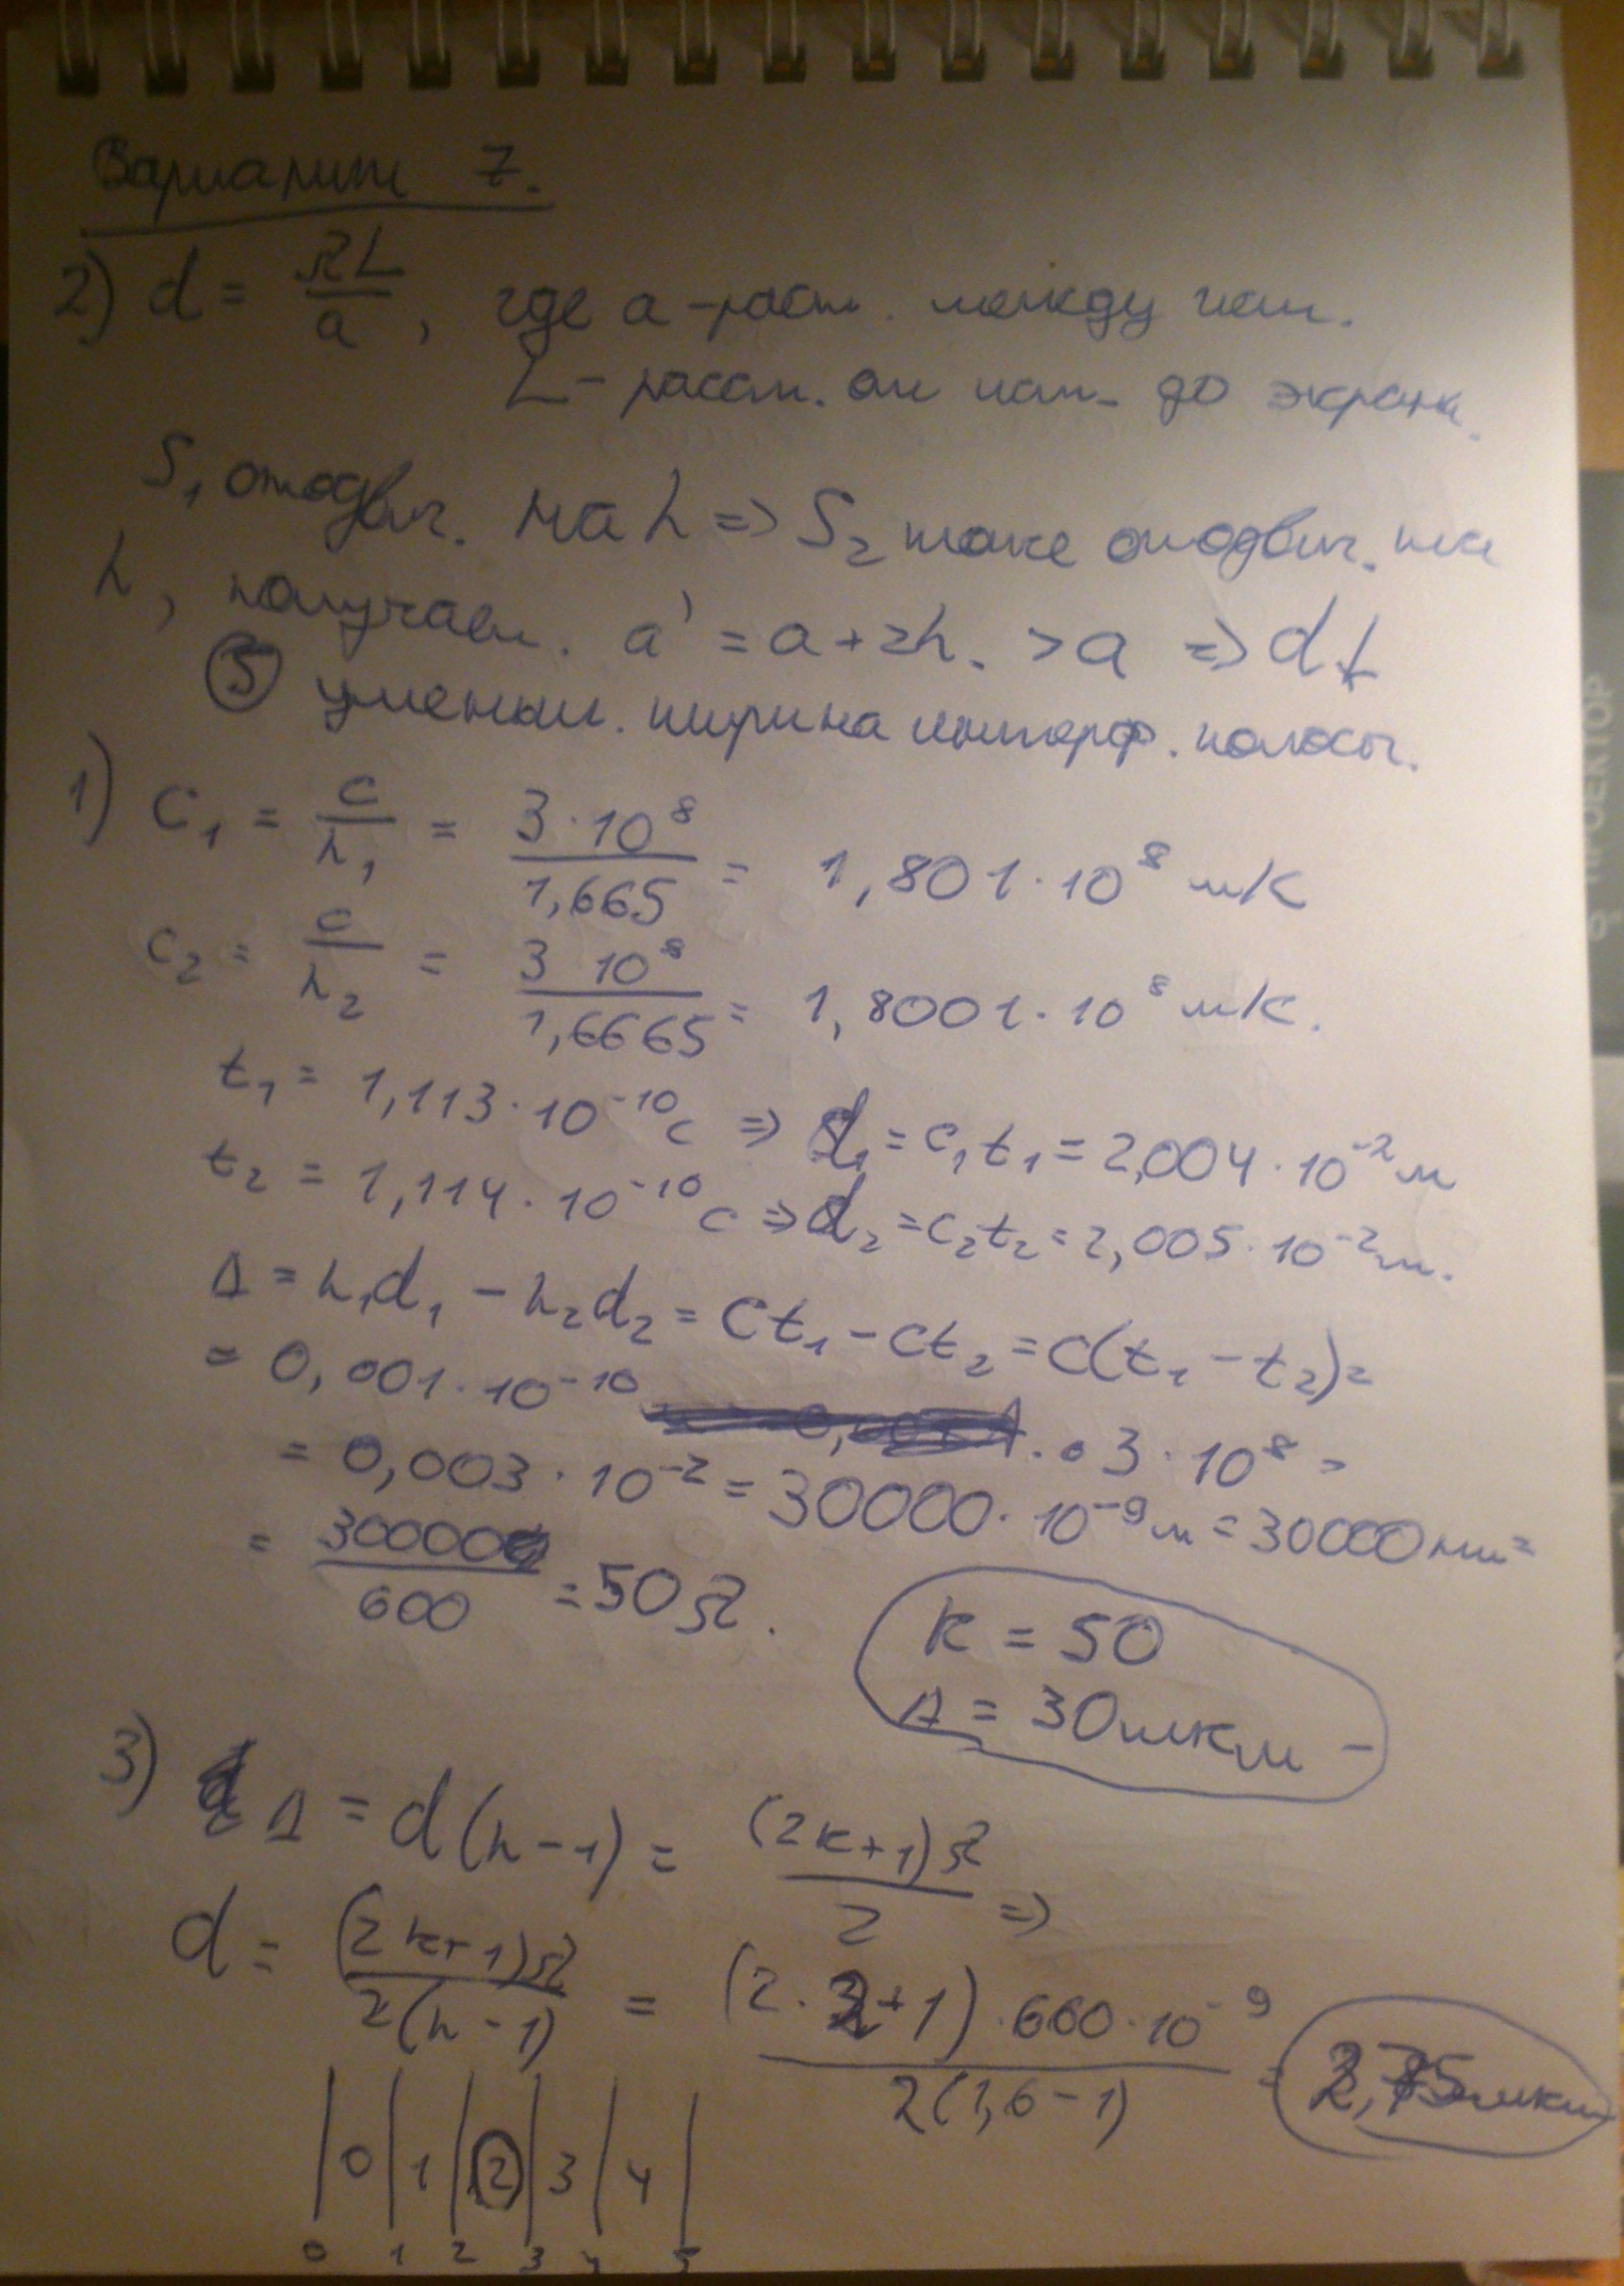 Вариант 7.
2) d = λL/a, где a - раст. между ист.
L - расст. от ист. до экрана.
S₁ отодвиг. на h => S₂ тоже отодвиг. на
h, получаем. a' = a + 2h. > a => d↓
⑤ уменьш. ширина интерф. полосы.
1) C₁ = c/n₁ = 3·10⁸/1,665 = 1,801·10⁸ м/с
C₂ = c/n₂ = 3 10⁸/1,6665 = 1,8001·10⁸ м/с.
t₁ = 1,113·10⁻¹⁰ с => d₁ = c₁t₁ = 2,004·10⁻² м
t₂ = 1,114·10⁻¹⁰ с => d₂ = c₂t₂ = 2,005·10⁻² м.
Δ = n₁d₁ - n₂d₂ = ct₁ - ct₂ = c(t₁ - t₂) =
= 0,001·10⁻¹⁰ · 3·10⁸ =
= 0,003·10⁻² = 30000·10⁻⁹ м = 30000 нм =
= 30000/600 = 50λ.
k = 50
Δ = 30 мкм -
3) Δ = d(n-1) = (2k+1)λ/2 =>
d = (2k+1)λ/2(n-1) = (2·2+1)·660·10⁻⁹/2(1,6-1) = 2,75 мкм
0 1 2 3 4
0 1 2 3 4 5